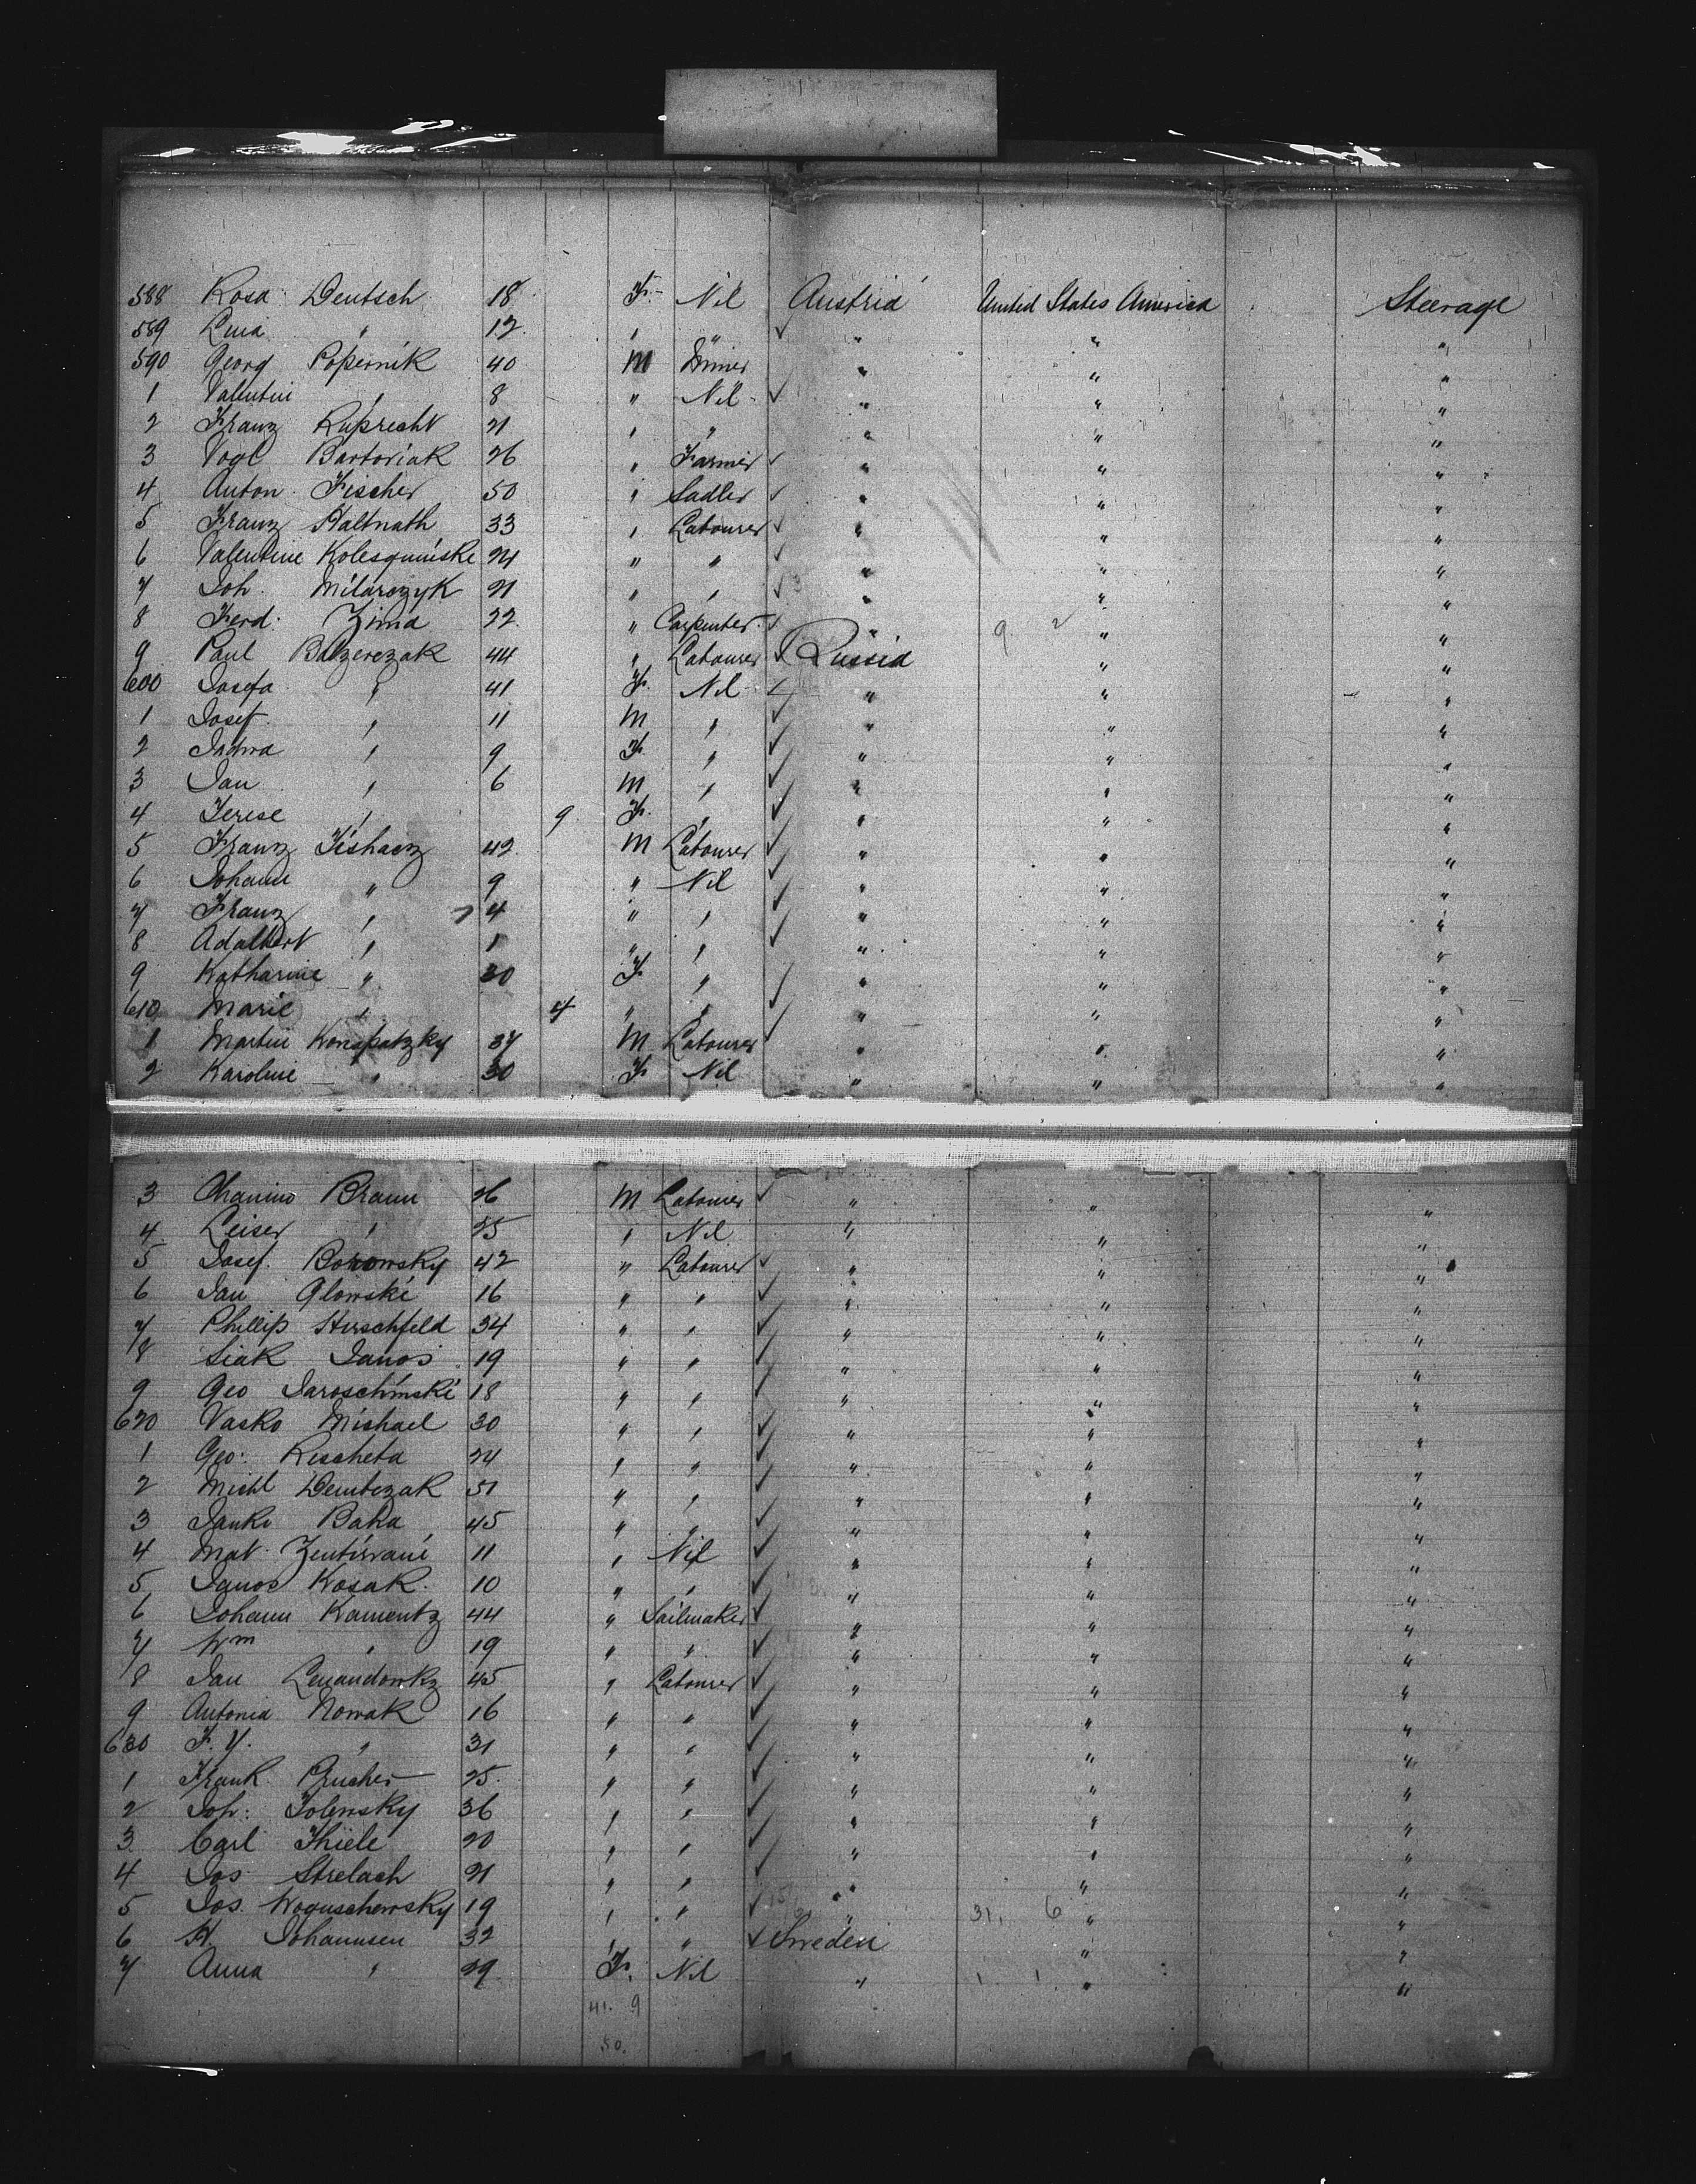 588 Rosa Deutsch 18 F. Nil Austria United States America Steerage
589 " 12 " " " " "
590 Georg Popernik 40 M Miner " " "
1 Valentin " 8 " Nil " " "
2 Franz Ruprecht 21 " " " " "
3 Vogl Bartoriak 26 " Farmer " " "
4 Anton Fischer 50 " Sadler " " "
5 Franz Haltnath 33 " Labourer " " "
6 Valentine 24 " " " " "
7 Joh. Milarczyk 21 " " " " "
8 Ferd: Zima 22 " Carpenter " 9 2 " "
9 Paul Balzerezak 44 " Labourer Russia " "
600 Josefa " 41 F. Nil " " "
1 Josef " 11 M " " " "
2 " 9 F. " " " "
3 Jan " 6 M " " " "
4 Terese " 9 F. " " " "
5 Franz 42 M Labourer " " "
6 Johann " 9 " Nil " " "
7 Franz " 4 " " " " "
8 Adalbert " 1 " " " " "
9 Katharine " 30 F " " " "
610 Marie " 4 " " " " "
1 Martin Konopatzky 37 M Labourer " " "
2 Karoline " 30 F Nil " " "
3 Braun 26 M Labourer " " "
4 Leiser " 25 " Nil " " "
5 Josef. Borowsky 42 " Labourer " " "
6 Jan Glowski 16 " " " " "
7 Phillip Hirschfeld 34 " " " " "
8 Siak Janos 19 " " " " "
9 Geo Jaroschinski 18 " " " " "
620 Vasko Michael 30 " " " " "
1 Geo: Rescheta 24 " " " " "
2 Michl Dembczak 51 " " " " "
3 Janko Baka 45 " " " " "
4 Mat. 11 " Nil " " "
5 Janos Kosak. 10 " " " " "
6 Johann Kamentz 44 " Sailmaker " " "
7 Wm " 19 " " " " "
8 Jan 45 " Labourer " " "
9 Antonia Nowak 16 " " " " "
630 F. Y. " 31 " " " " "
1 Frank 25 " " " " "
2 Joh: Tolensky 36 " " " " "
3 Carl Thiele 20 " " " " "
4 Jos Strelach 21 " " " " "
5 Jos. Woguschewsky 19 " " " 31. 6 " "
6 H. Johannsen 32 " " Sweden " "
7 Anna " 29 F. Nil " 1 1 " "
41. 9
50.